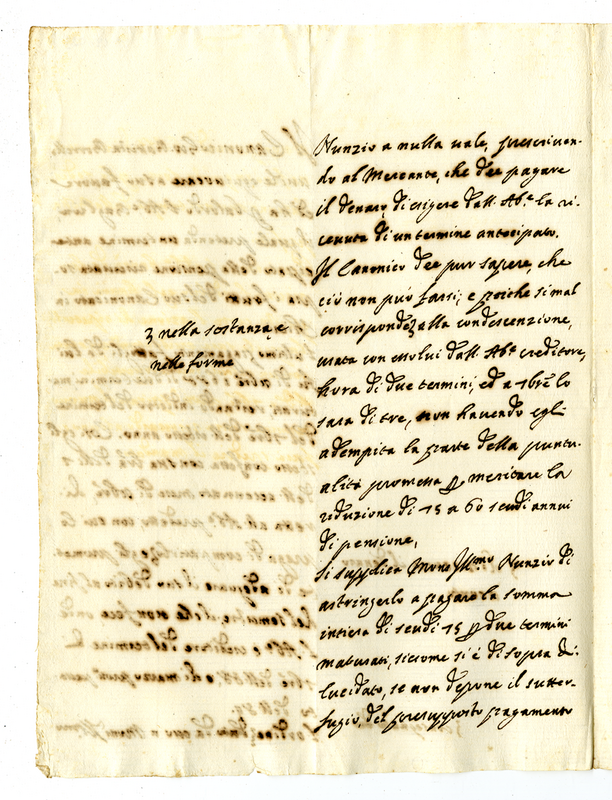 Nunzio a nulla vale, prescriven-
do al Mercante, che dee pagare
il denaro, di esigere dall' Ab.e la ri-
cevuta di un termine anticipato.
Il Canonico dee pur sapere, che
ciò non può farsi; e poiche si mal
corrisponde alla condescenzione,
3 nella sostanza, e
nelle forme
usata con esso lui dall' Ab.e creditore,
hora di due termini, ed a 9bre lo
sara di tre, non havendo egli
adempita la parte della puntu-
alità promessa p meritare la
riduzione di 75 a 60 scudi annui
di pensione,
si supplica Mons.r Ill.mo Nunzio di
astringerlo a pagare la somma
intiera di scudi 75 p due termini
maturati, siccome si é di sopra di-
lucidato, se non depone il sutter-
fugio del presupposto pagamento